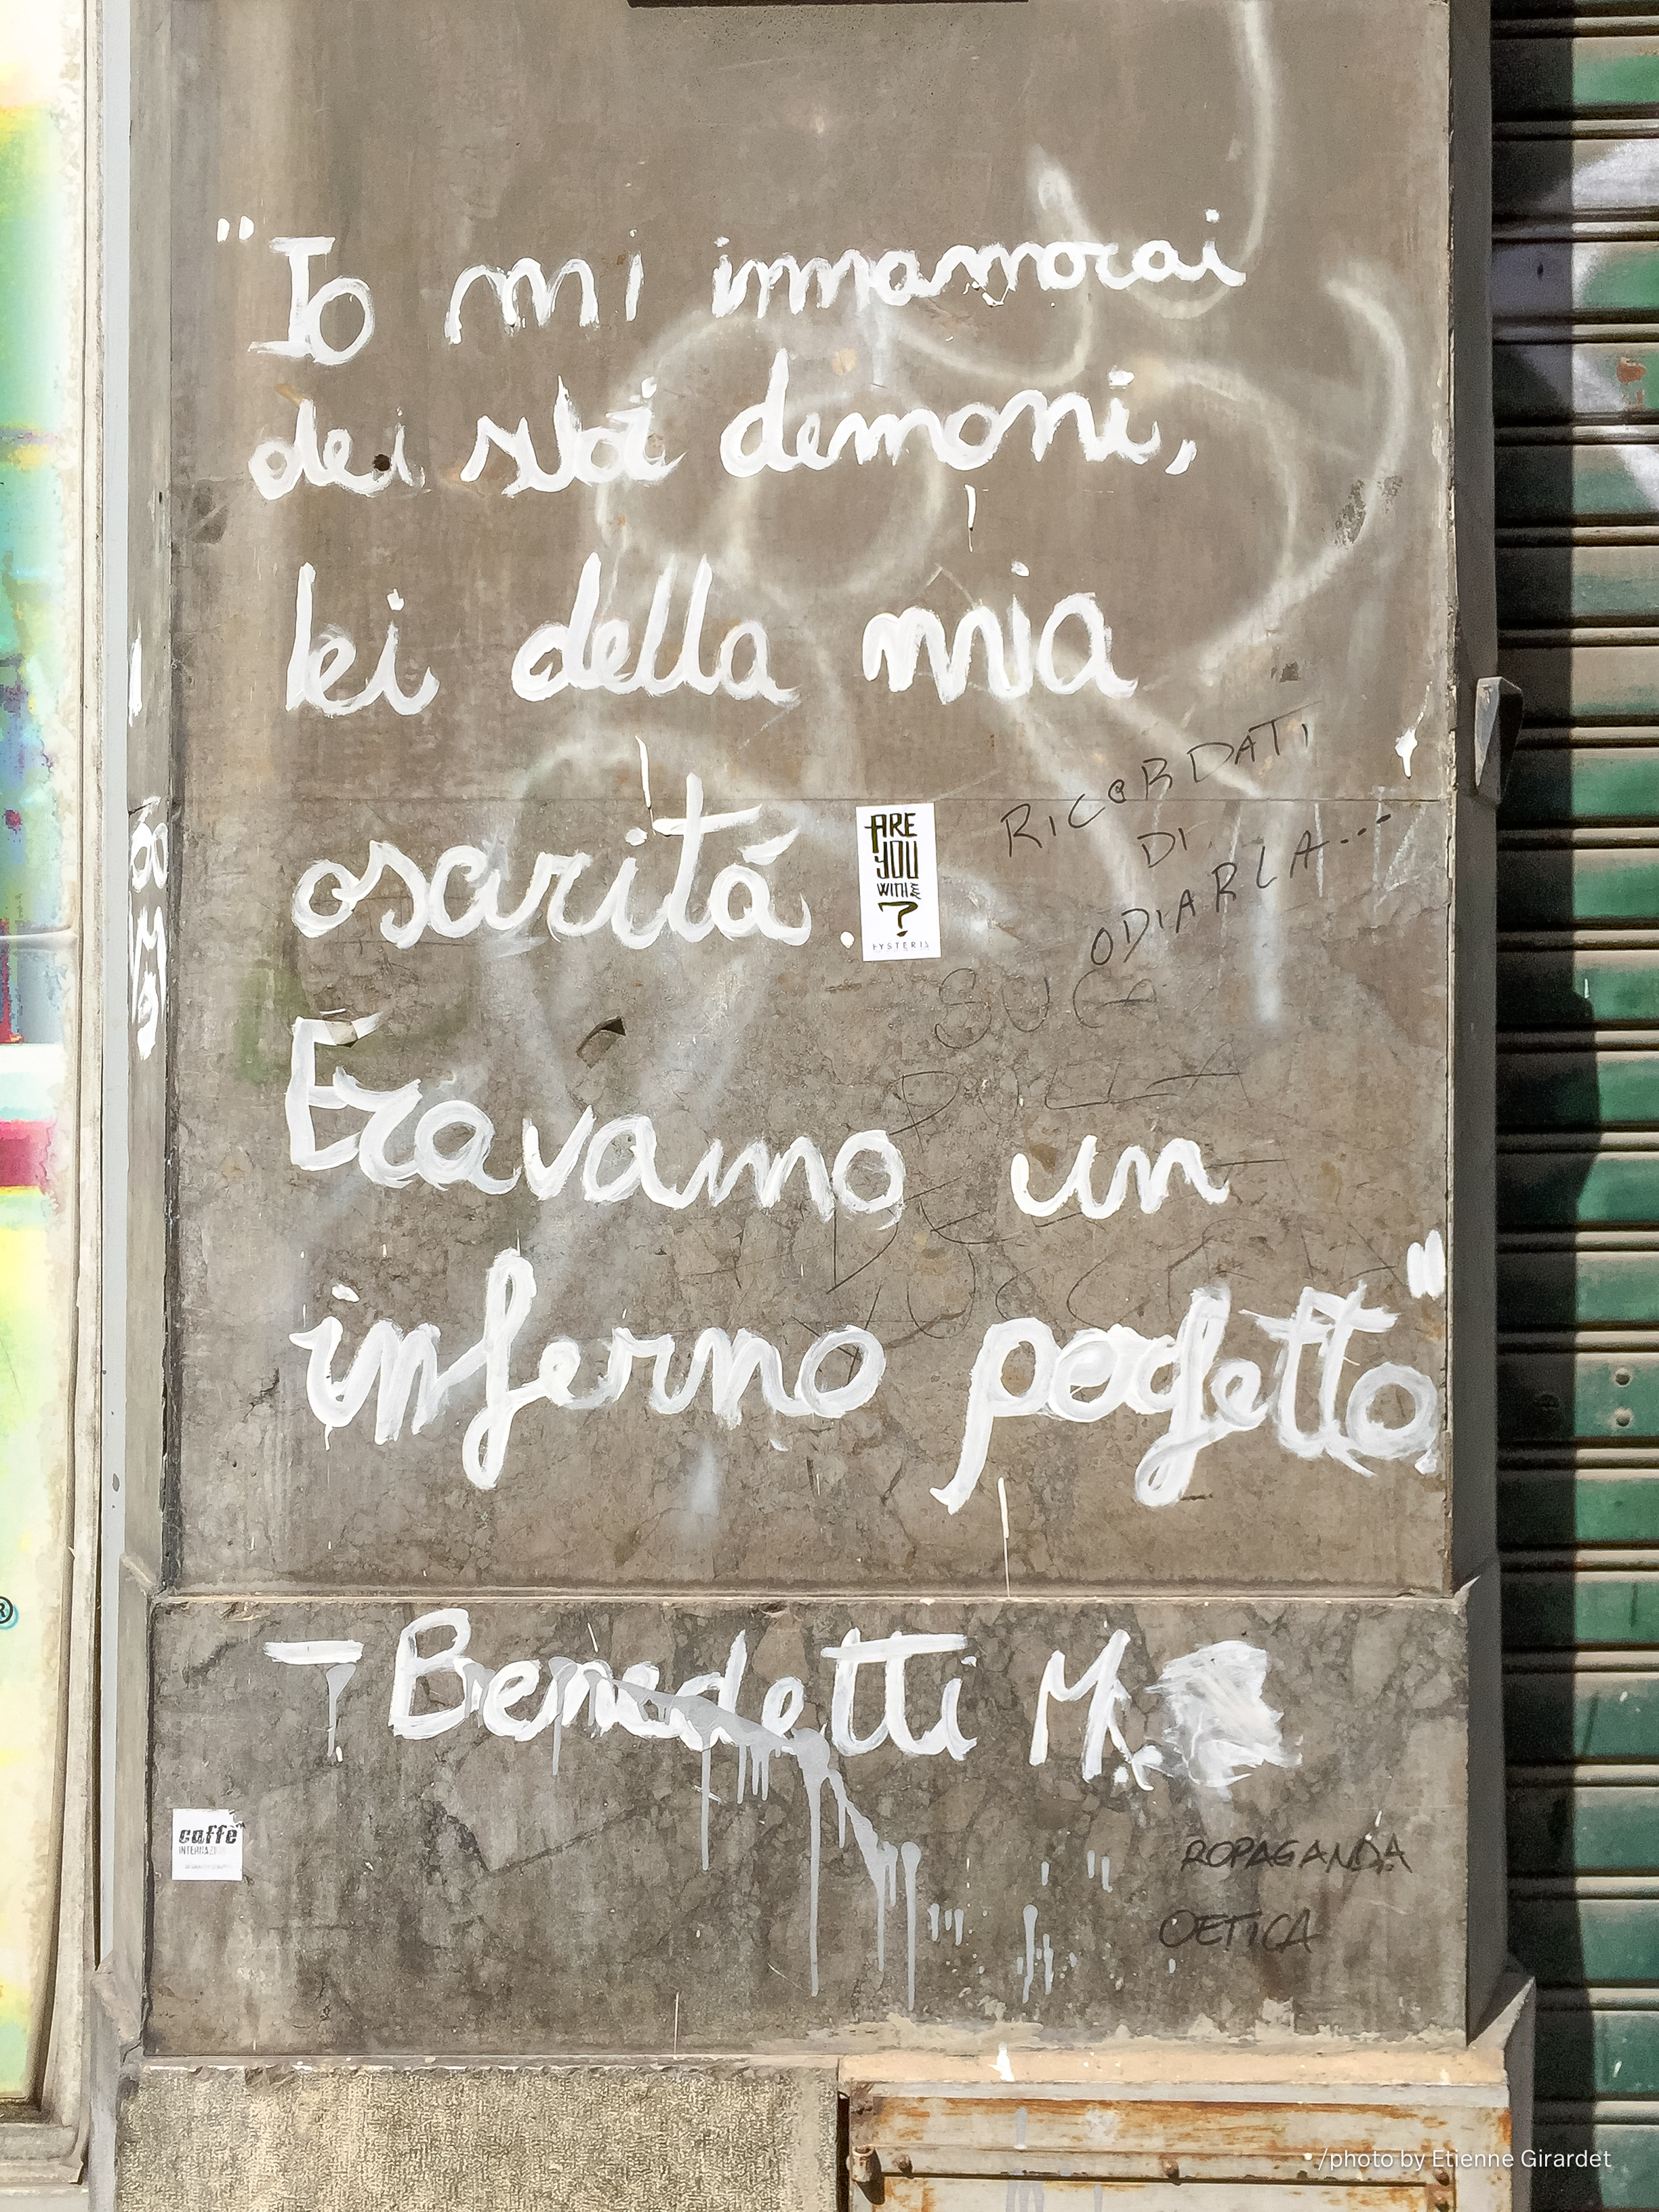 "Io mi innamorai
dei suoi demoni,
lei della mia
oscurità.
ARE
YOU
WITH ME
?
HYSTERIA
RICORDATI
DI
ODIARLA...
SUCA
Eravamo un
inferno perfetto."
- Benedetti M.
caffè
INTERNAZIONALE
ROPAGANDA
OETICA
®
/photo by Etienne Girardet